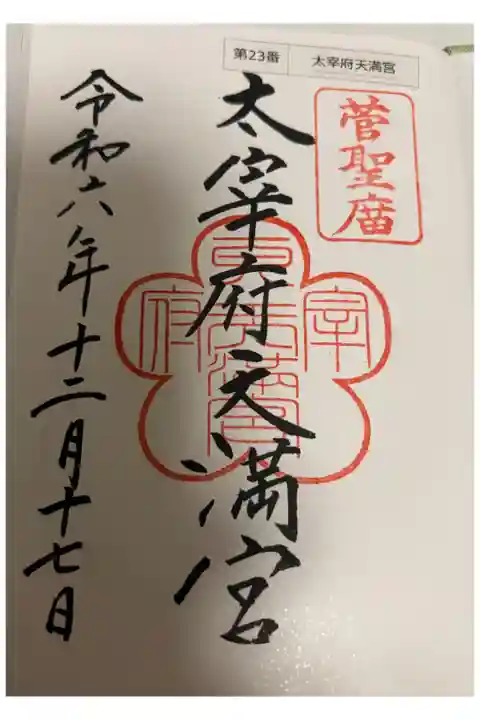 第23番 太宰府天満宮
菅聖廟
太宰府天満宮
令和六年十二月十七日
宰
府
天満宮